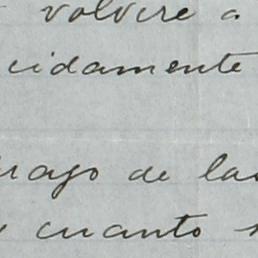 volvere a
cidamente
rago de las
cuanto